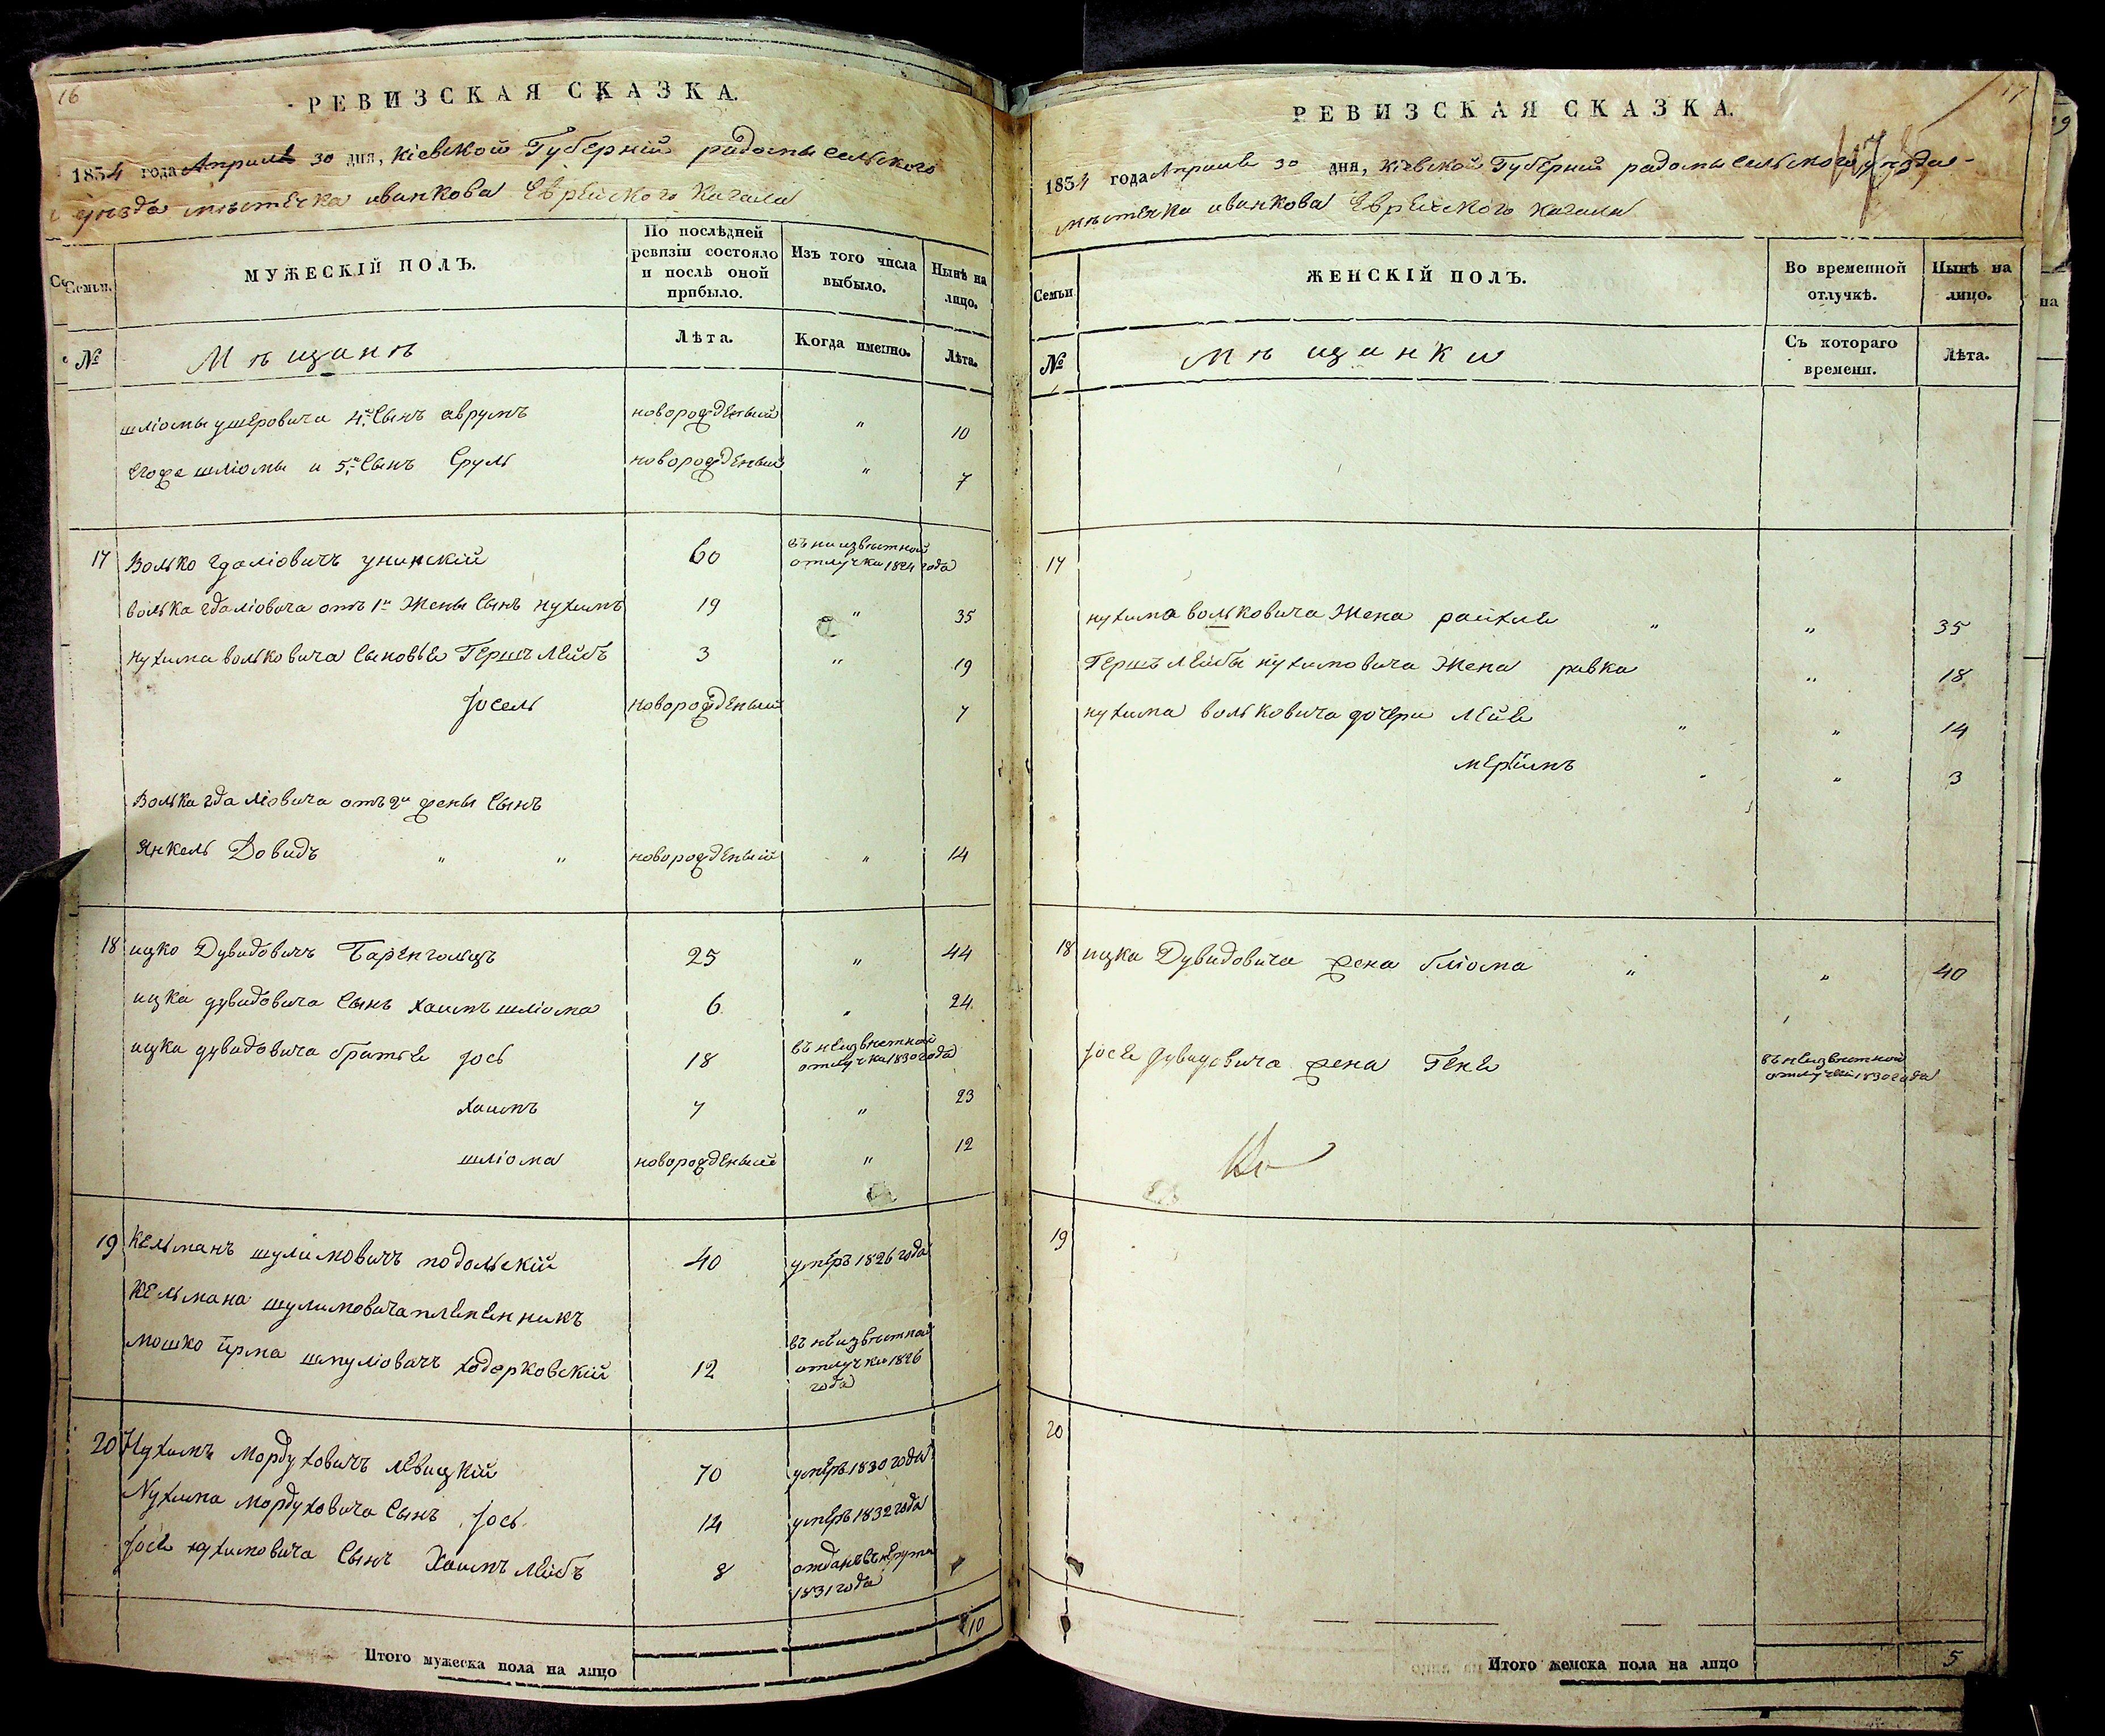 16
РЕВИЗСКАЯ СКАЗКА.
1834 года Апреля 30 дня, кіевской Губерніи радомысельского
уѣзда мѣстечка иванкова Еврейского Кагала
Семьи.
МУЖЕСКІЙ ПОЛЪ.
По послѣдней ревизіи состояло и послѣ оной прибыло.
Изъ того числа выбыло.
Нынѣ на лицо.
№
Мѣщанѣ
Лѣта.
Когда именно.
Лѣта.
шліомы ушеровича 4й Сынъ аврумъ новорожденый " 10
Егоже шліомы и 5й Сынъ Сруль новорожденый " 7
17 Волько гдаліовичъ унинскій 60 въ неизвѣстной отлучки 1824 года
волька гдаліовича отъ 1й Жены Сынъ нухимъ 19 " 35
нухима вольковича Сыновья Гершъ Лейбъ 3 " 19
Іосель новорожденый 7
Волька гдаліовича отъ 2й жены Сынъ
Янкель Довидъ " " новорожденый " 14
18 ицко Дувидовичъ Баренгольцъ 25 " 44
ицка дувидовича Сынъ хаимъ шліома 6 " 24
ицка дувидовича братья Іось 18 въ неизвѣстной отлучки 1830 года
хаимъ 7 " 23
шліома новорожденый " 12
19 Кельманъ шулимовичъ подольскій 40 умеръ 1826 года
Кельмана шулимовича племенникъ
мошко ирма шмуліовичъ ходорковскій 12 въ неизвѣстной отлучки 1826 года
20 Нухимъ мордуховичъ левицкій 70 умеръ 1830 года
Нухима мордуховича Сынъ Іось 14 умеръ 1832 года
Іося нухимовича Сынъ Хаимъ Лейбъ 8 отданъ въ рекрута 1831 года
Итого мужеска пола на лицо 10
17
РЕВИЗСКАЯ СКАЗКА.
1834 года Апреля 30 дня, Кіевской Губерніи радомысельского уѣзда
мѣстечка иванкова Еврейского кагала
Семьи
ЖЕНСКІЙ ПОЛЪ.
Во временной отлучкѣ.
Нынѣ на лицо.
№
Мѣщанки
Съ котораго времени.
Лѣта.
17
нухима вольковича Жена райхля " " 35
Гершъ Лейбы нухимовича Жена ривка " 18
нухима вольковича дочери Лея " " 14
меріимъ " " 3
18 ицка Дувидовича жена бліома " " 40
Іося дувидовича жена Геня въ неизвѣстной отлучки 1830 года
19
20
Итого женска пола на лицо 5